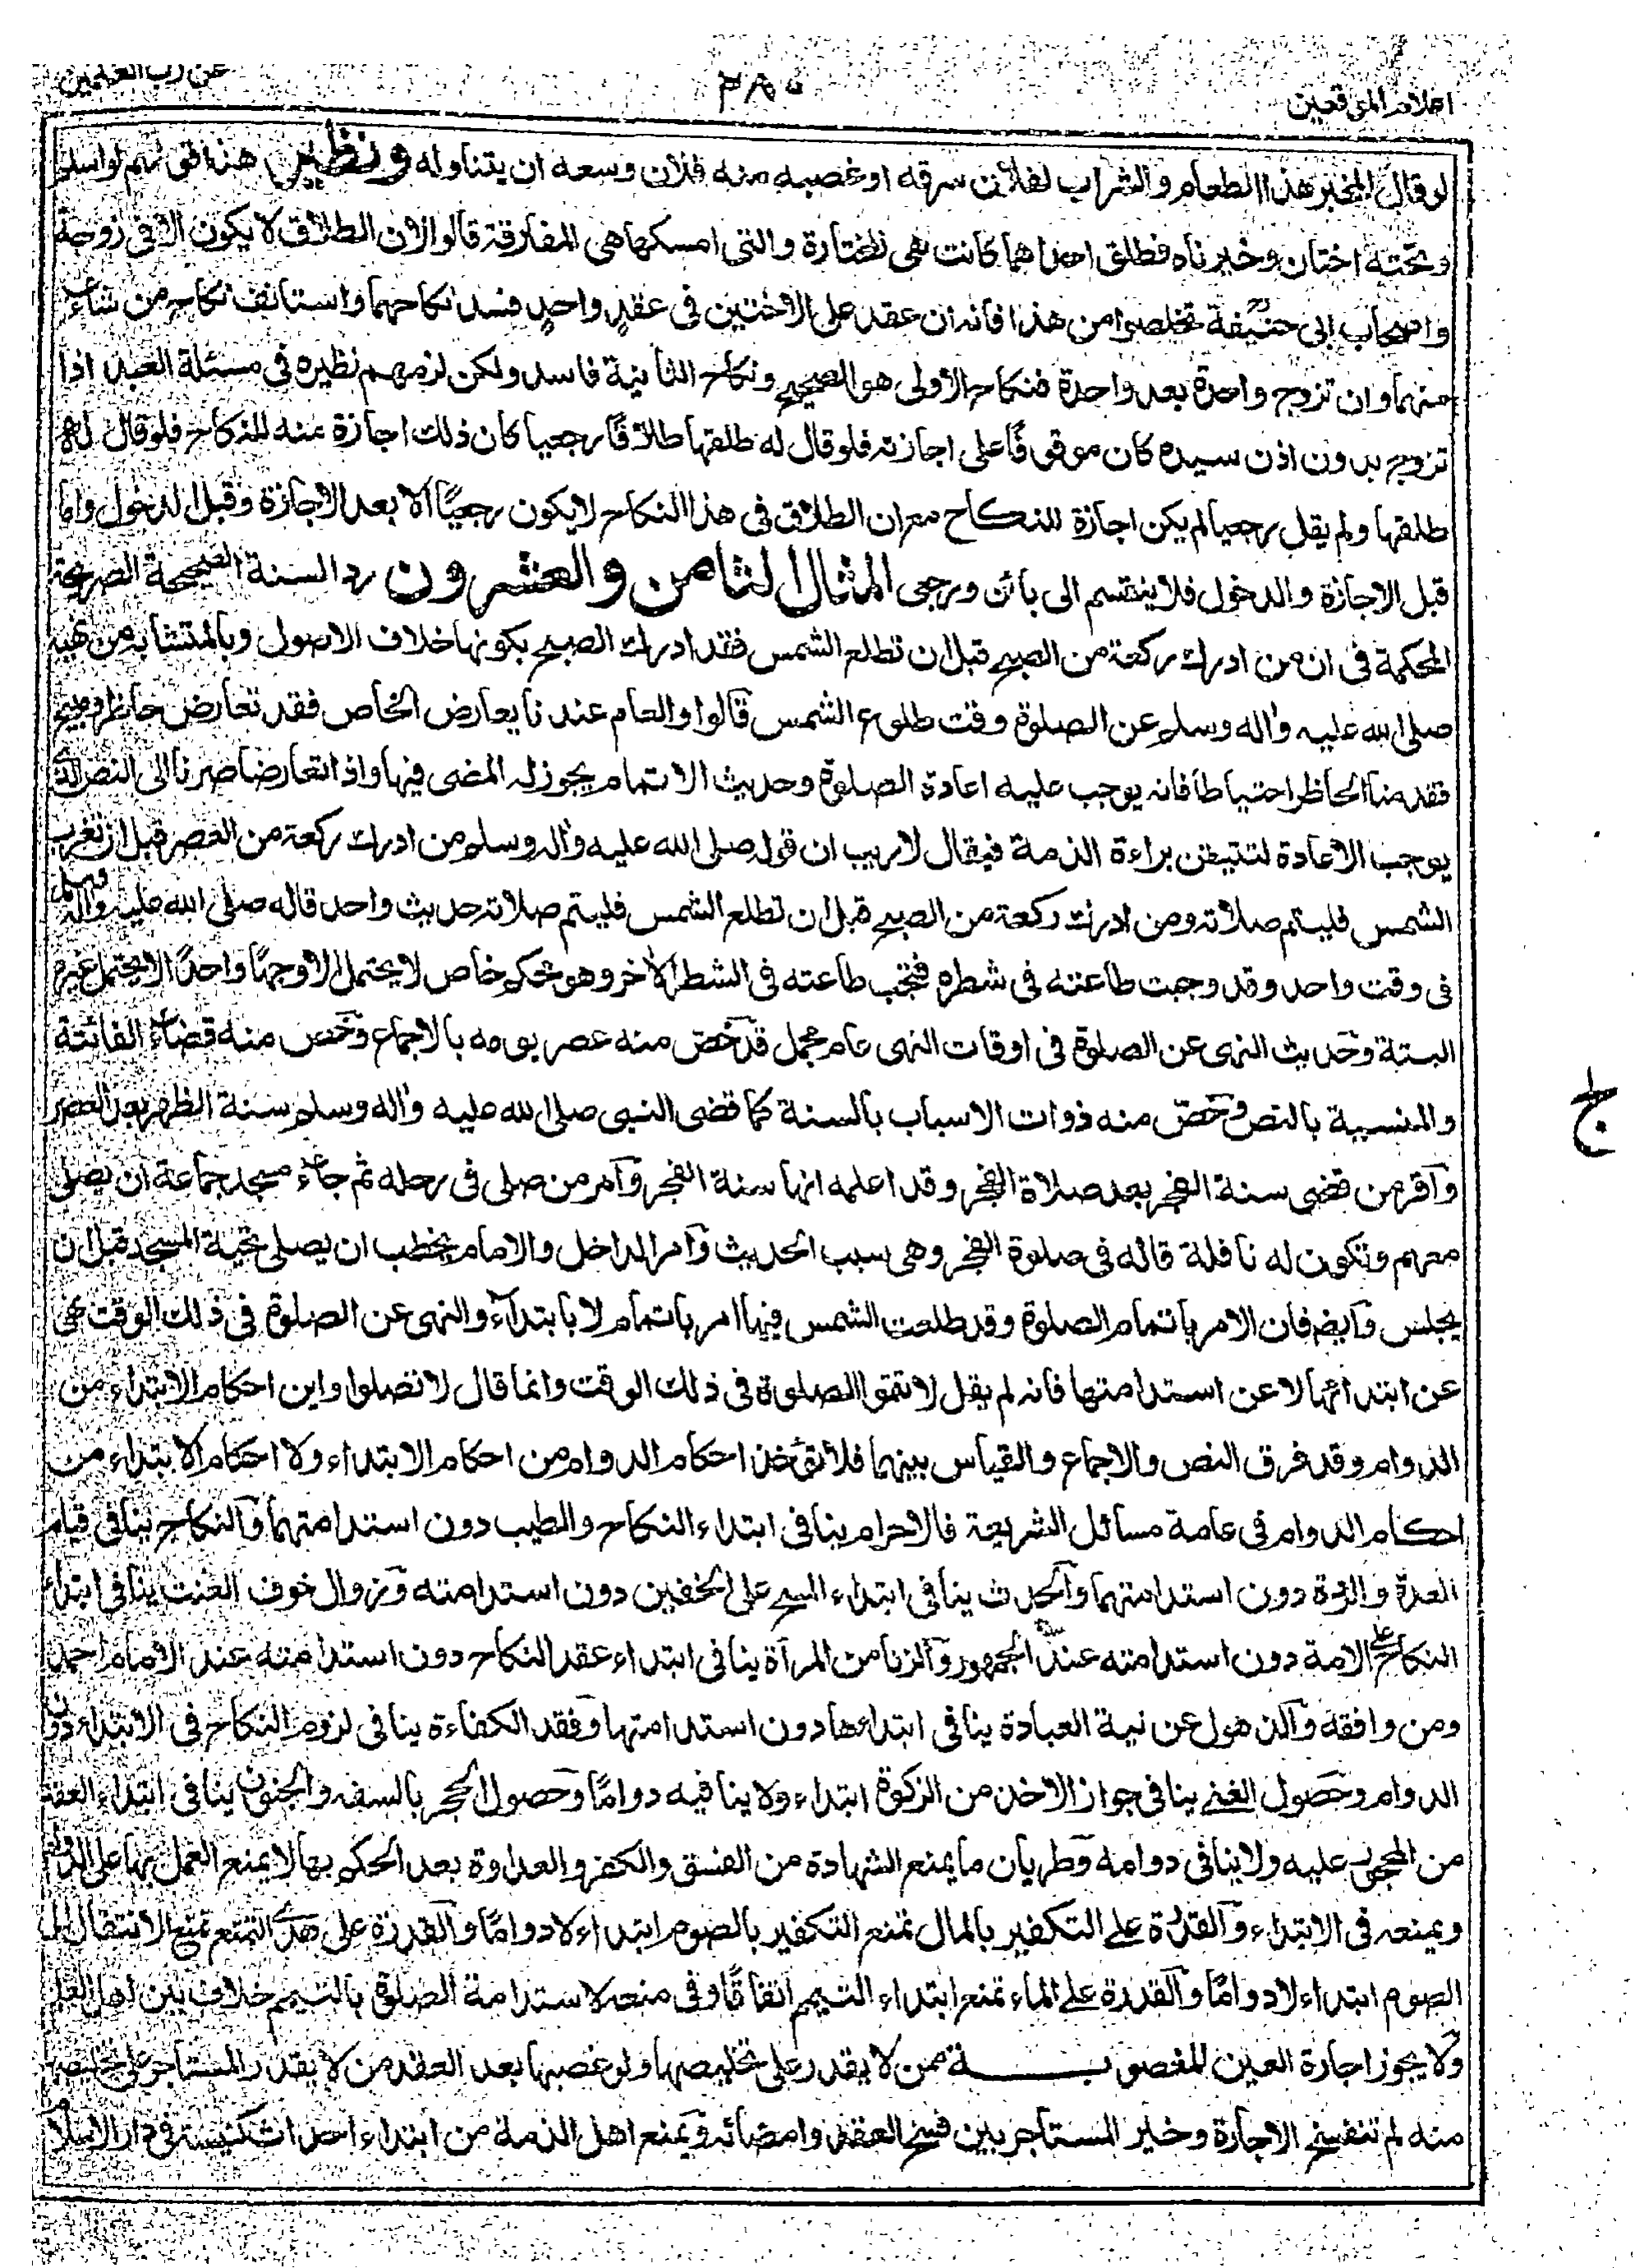 اعلام الموقعين
٣٨٠
عن رب العلمين
لو قال المخبر هذا الطعام والشراب لفلان سرقه او غصبه منه فلان وسعه ان يتناوله ونظير هذا قولهم لو اسلم
وتحته اختان وخيرناه فطلق احداهما كانت هى المختارة والتى امسكها هى المفارقة قالوا لان الطلاق لا يكون الا فى زوجة
واصحاب ابى حنيفة تخلصوا من هذا فانه ان عقد على الاختين فى عقد واحد فسد نكاحهما واستانف نكاح من شاء
منهما وان تزوج واحدة بعد واحدة فنكاح الأولى هو الصحيح ونكاح الثانية فاسد ولكن لزمهم نظيره فى مسئلة العبد اذا
تزوج بدون اذن سيده كان موقوفًا على اجازته فلو قال له طلقها طلاقًا رجعيا كان ذلك اجازة منه للنكاح فلو قال له
طلقها ولم يقل رجعيا لم يكن اجازة للنكاح مع ان الطلاق فى هذا النكاح لا يكون رجعيًا الا بعد الاجازة وقبل الدخول واما
قبل الاجازة والدخول فلا ينقسم الى بائن ورجعى المثال الثامن والعشرون رد السنة الصحيحة الصريحة
المحكمة فى ان من ادرك ركعة من الصبح قبل ان تطلع الشمس فقد ادرك الصبح بكونها خلاف الاصول وبالمتشابه من نهيه
صلى الله عليه واٰله وسلم عن الصلوة وقت طلوع الشمس قالوا والعام عندنا يعارض الخاص فقد تعارض حاظر ومبيح
فقدمنا الحاظر احتياطا فانه يوجب عليه اعادة الصلوة وحديث الاتمام يجوز له المضى فيها واذا تعارضا صرنا الى النص الذى
يوجب الاعادة لتتيقن براءة الذمة فيقال لا ريب ان قوله صلى الله عليه واٰله وسلم من ادرك ركعة من العصر قبل ان تغرب
الشمس فليتم صلاته ومن ادرك ركعة من الصبح قبل ان تطلع الشمس فليتم صلاته حديث واحد قاله صلى الله عليه واٰله وسلم
فى وقت واحد وقد وجبت طاعته فى شطره فتجب طاعته فى الشطر الاٰخر وهو محكم خاص لا يحتمل الا وجهًا واحدًا لا يحتمل غيره
البتة وحديث النهى عن الصلوة فى اوقات النهى عام مجمل قد خص منه عصر يومه بالاجماع وخص منه قضاء الفائتة
والمنسية بالنص وخصّ منه ذوات الاسباب بالسنة كما قضى النبى صلى الله عليه واٰله وسلم سنة الظهر بعد العصر
واقر من قضى سنة الفجر بعد صلاة الفجر وقد اعلمه انها سنة الفجر وامر من صلى فى رحله ثم جاء مسجد جماعة ان يصلى
معهم وتكون له نافلة قاله فى صلوة الفجر وهى سبب الحديث وامر الداخل والامام يخطب ان يصلى تحية المسجد قبل ان
يجلس وايضا فان الامر باتمام الصلوة وقد طلعت الشمس فيها امر باتمام لا بابتداء والنهى عن الصلوة فى ذلك الوقت نهى
عن ابتدائها لا عن استدامتها فانه لم يقل لا تتموا الصلوة فى ذلك الوقت وانما قال لا تصلوا واين احكام الابتداء من
الدوام وقد فرق النص والاجماع والقياس بينهما فلا تؤخذ احكام الدوام من احكام الابتداء ولا احكام الابتداء من
احكام الدوام فى عامة مسائل الشريعة فالاحرام ينافى ابتداء النكاح والطيب دون استدامتهما والنكاح ينافى قيام
العدة والردة دون استدامتهما والحدث ينافى ابتداء المسح على الخفين دون استدامته وزوال خوف العنت ينافى ابتداء
النكاح على الامة دون استدامته عند الجمهور والزنا من المرأة ينافى ابتداء عقد النكاح دون استدامته عند الامام احمد
ومن وافقه والذهول عن نية العبادة ينافى ابتداءها دون استدامتها وفقد الكفاءة ينافى لزوم النكاح فى الابتداء دون
الدوام وحصول الغنى ينافى جواز الاخذ من الزكوة ابتداء ولا ينافيه دوامًا وحصول الحجر بالسفه والجنون ينافى ابتداء العقد
من المحجور عليه ولا ينافى دوامه وطريان ما يمنع الشهادة من الفسق والكفر والعداوة بعد الحكم بها لا يمنع العمل بها على الدوام
ويمنعه فى الابتداء والقدرة على التكفير بالمال تمنع التكفير بالصوم ابتداء لا دوامًا والقدرة على هدى التمتع تمنع الانتقال الى
الصوم ابتداء لا دوامًا والقدرة على الماء تمنع ابتداء التيمم اتفاقًا وفى منعه لاستدامة الصلوة بالتيمم خلاف بين اهل العلم
ولا يجوز اجارة العين المغصوبة ممن لا يقدر على تخليصها ولو غصبها بعد العقد من لا يقدر المستاجر على تخليصها
منه لم تنفسخ الاجارة وخير المستاجر بين فسخ العقد وامضائه ويمنع اهل الذمة من ابتداء احداث كنيسة فى دار الاسلام
ج